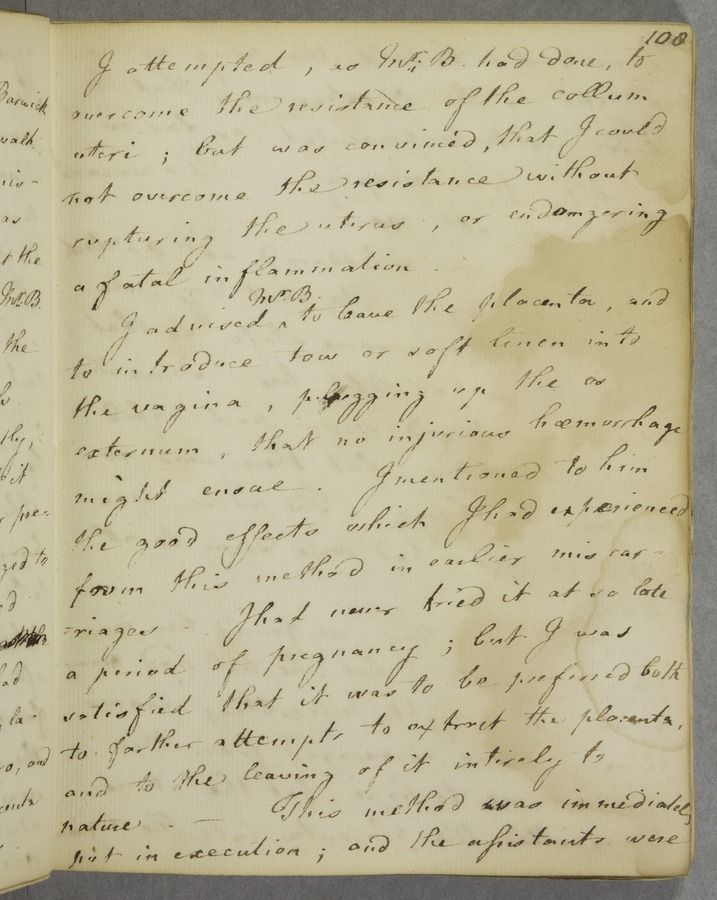 108
I attempted, as Mr. B. had done, to
overcome the resistance of the collum
uteri; but was convinced, that I could
not overcome the resistance without
rupturing the uterus, or endangering
a fatal inflammation.
Mr. B.
I advised ^ to leave the placenta, and
to introduce tow or soft linen into
the vagina, plugging up the os
externum, that no injurious hæmorrhage
might ensue. I mentioned to him
the good effects which I had experienced
from this method in earlier miscar-
=riages. I had never tried it at so late
a period of pregnancy; but I was
satisfied that it was to be preferred both
to farther attempts to extract the placenta,
and to the leaving of it intirely to
nature. — This method was immediately
put in execution; and the assistants were
Barwick
walk
as
t the
Mr. B.
the
it
zed to
had
la-
ro, and